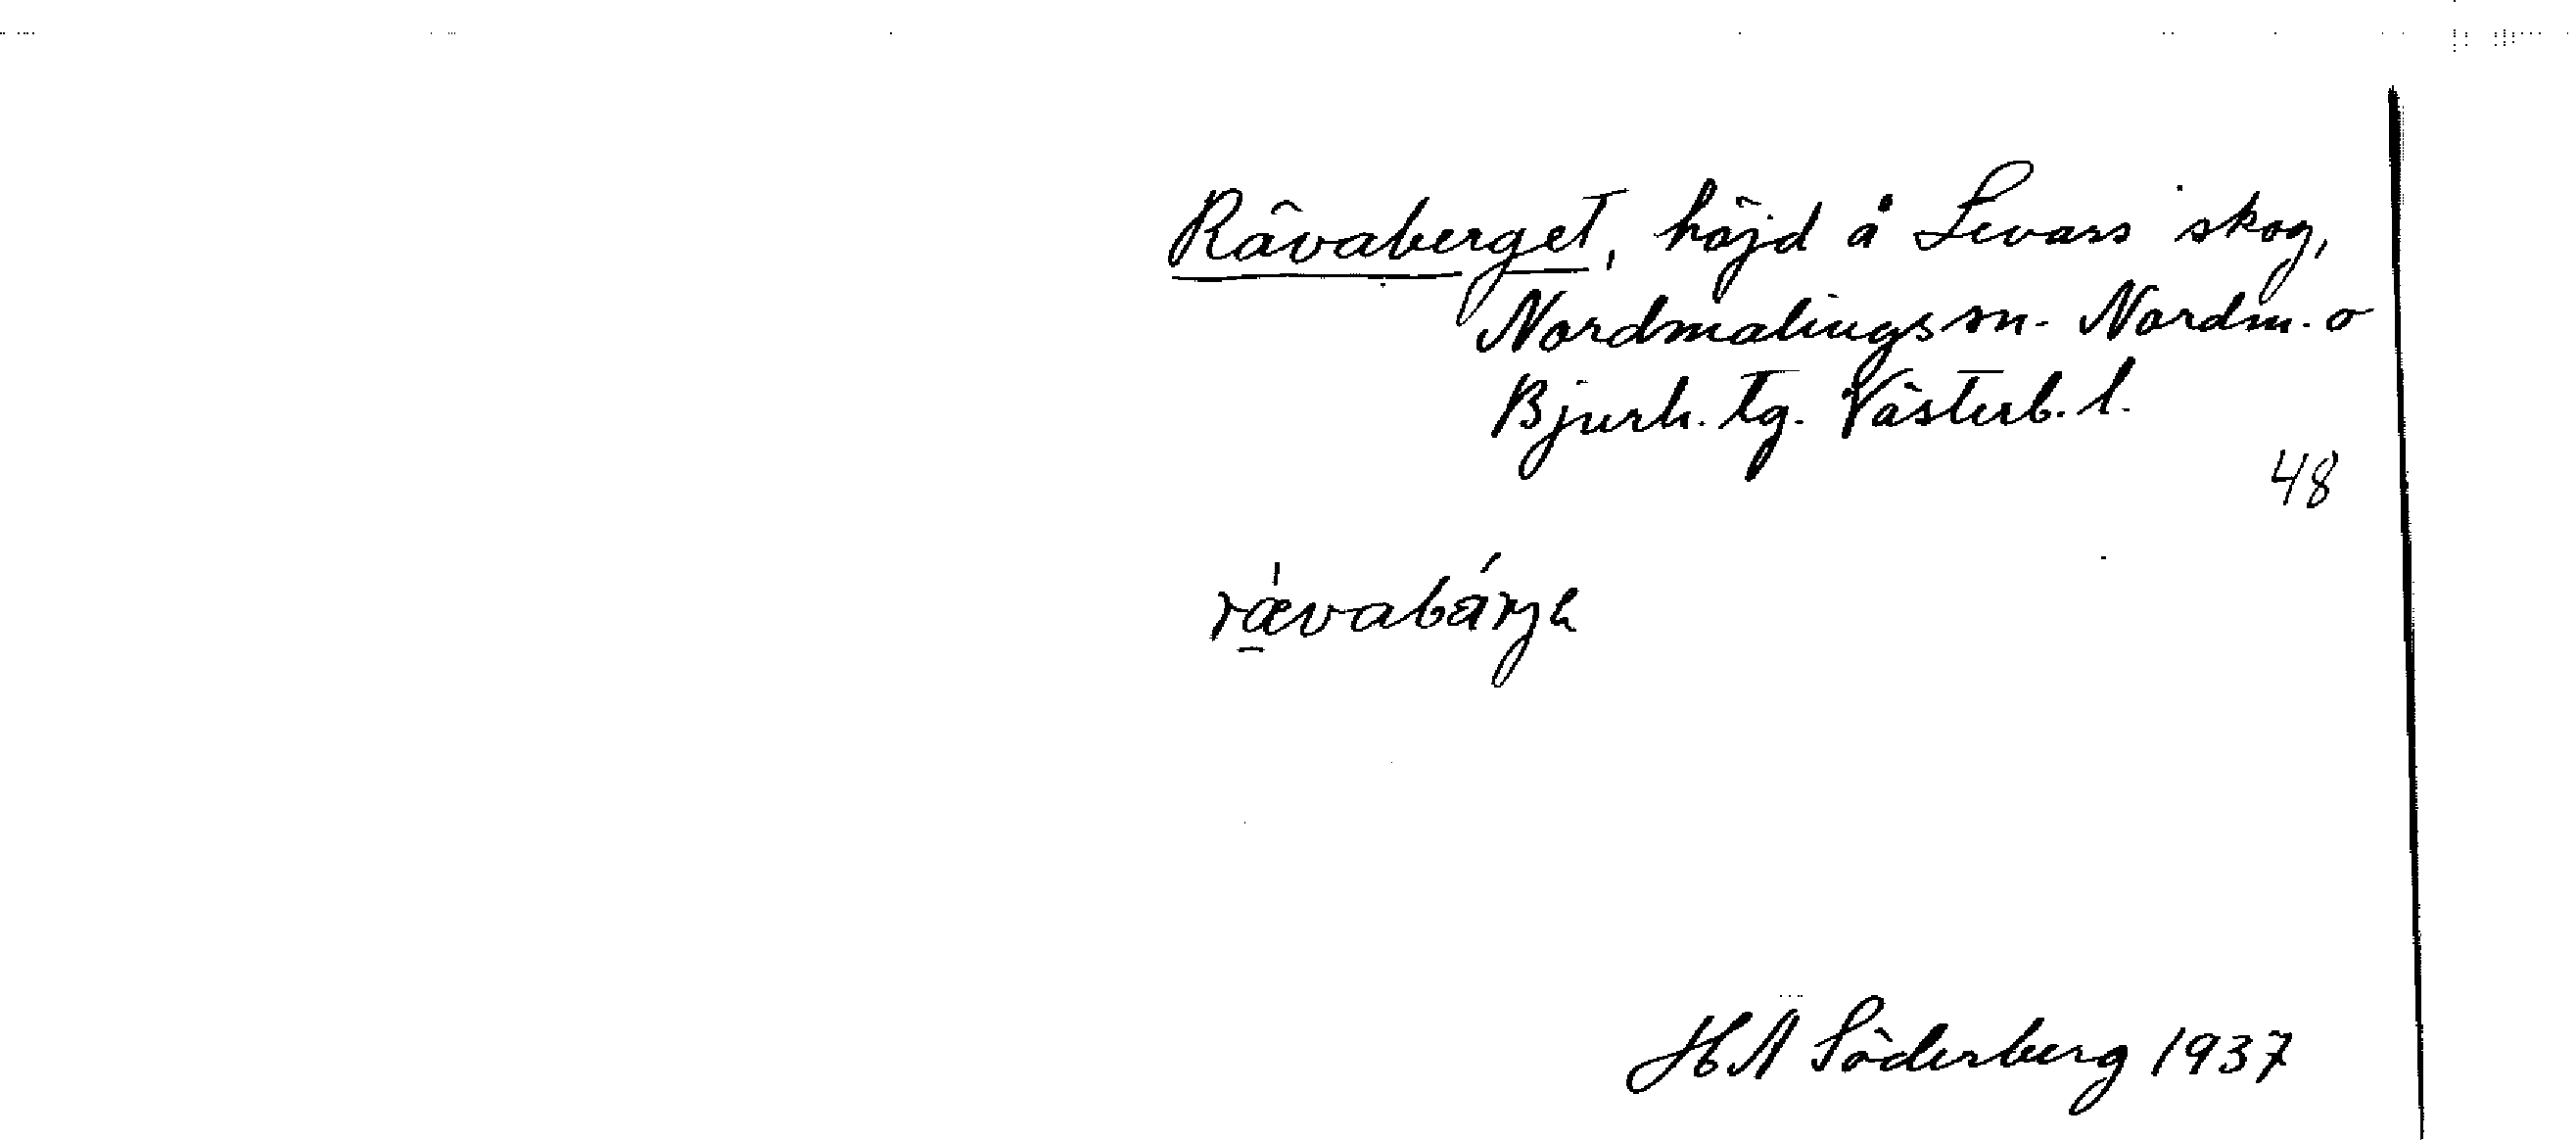 Rävaberget, höjd å Levars skog,
Nordmalings sn. Nordm. o
Bjurh. tg. Västerb. l.
48
H A Söderberg 1937